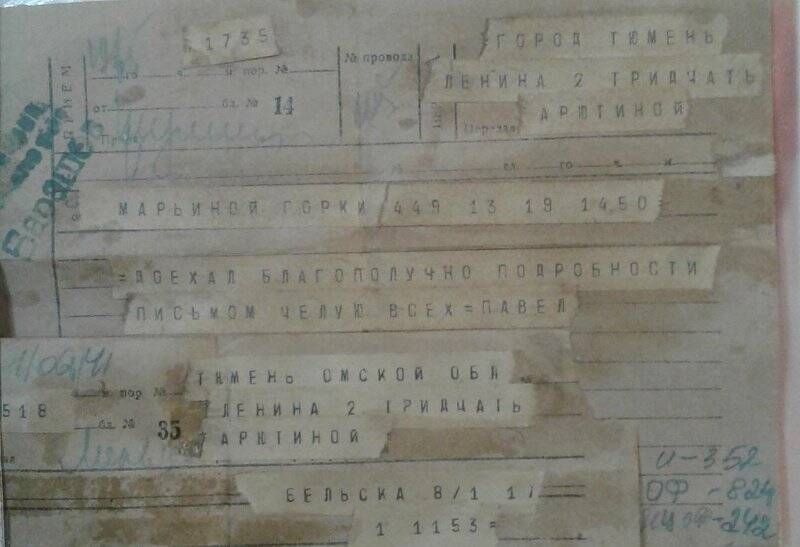 1735
ГОРОД ТЮМЕНЬ
№ провода
ЛЕНИНА 2 ТРИДЧАТЬ
го ч. м. пор. №
от бл. № 14
АРЮТИНОЙ
ПРИЕМ
Передал
№ сл. го ч. м.
МАРЬИНОЙ ГОРКИ 449 13 19 1450=
=ДОЕХАЛ БЛАГОПОЛУЧНО ПОДРОБНОСТИ
ПИСЬМОМ ЧЕЛУЮ ВСЕХ=ПАВЕЛ
ТЮМЕНЬ ОМСКОЙ ОБЛ
м. пор. №
518
ЛЕНИНА 2 ТРИДЧАТЬ
бл. № 35
АРЮТИНОЙ
БЕЛЬСКА 8/1 17
1 1153=
И-352
ОФ-824
ОФ-242